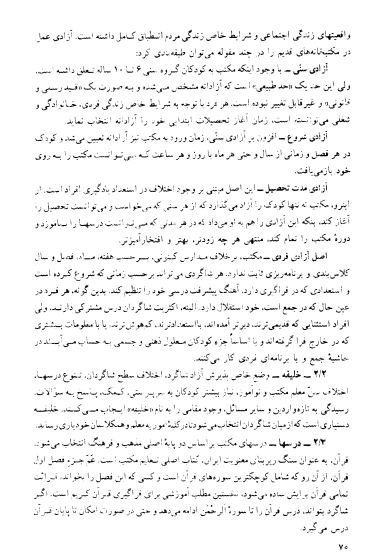 واقعیتهای زندگی اجتماعی و شرایط خاص زندگی مردم انطباق کامل داشته است. آزادی عمل
در مکتبخانه‌های قدیم را در چند مقوله می‌توان طبقه‌بندی کرد:
آزادی سنّی ــ با وجود اینکه مکتب به کودکان گروه سنی ۶ تا ۱۰ ساله تعلق داشته است،
ولی این حد یک «حد طبیعی» است که آزادانه مشخص می‌شده و به صورت یک «قید رسمی و
قانونی» و غیرقابل تغییر نبوده است. هر فرد با توجه به شرایط خاص زندگی فردی، خانوادگی و
شغلی می‌توانسته است، زمان آغاز تحصیلات ابتدایی خود را آزادانه انتخاب نماید.
آزادی شروع ــ افزون بر آزادی سنّی، زمان ورود به مکتب نیز آزادانه تعیین می‌شد و کودک
در هر فصل و زمانی از سال و حتی هر ماه یا روز و هر ساعت که می‌توانست مکتب را به روی
خود باز می‌یافت.
آزادی مدت تحصیل ــ این اصل مبتنی بر وجود اختلاف در استعداد یادگیری افراد است. از
اینرو، مکتب نه تنها کودک را آزاد می‌گذارد که از هر سنی که می‌خواست و می‌توانست تحصیل را
آغاز کند، بلکه این آزادی را هم به او می‌داد که در هر مدتی که می‌توانست درسها را بیاموزد و
دورهٔ مکتب را تمام کند، منتهی هر چه زودتر، بهتر و افتخارآمیزتر.
اصل آزادی فردی ــ مکتب، برخلاف مدارس کنونی، برحسب هفته، ماه، فصل و سال
کلاس‌بندی و برنامه‌ریزی ثابت ندارد. هر شاگردی می‌تواند برحسب زمانی که شروع کرده است
و استعدادی که در فراگیری دارد، آهنگ پیشرفت درسی خود را تنظیم کند. بدین گونه، هر فرد در
عین حال که در جمع است، خود استقلال دارد. البته، اکثریت شاگردان درس مشترکی دارند، ولی
افراد استثنایی که قدیمی‌ترند، دیرتر آمده‌اند، بااستعدادترند، کم‌هوش‌ترند، یا با معلومات بیشتری
که در خارج فرا گرفته‌اند و یا اساساً جزء کودکان معلول ذهنی و جسمی به حساب می‌آیند در
حاشیهٔ جمع و با برنامه‌ای فردی کار می‌کنند.
۲/۲ ــ خلیفه ــ وضع خاص پذیرش آزاد شاگرد، اختلاف سطح شاگردان، تنوع درسها،
اختلاف سن معلم مکتب و نوآموز، نیاز بیشتر کودکان به سرپرستی، کمک، پاسخ به سؤالات،
رسیدگی به تازه‌واردین و سایر مسائل، وجود مقامی را به نام «خلیفه» ایجاب می‌کند. خلیفه
دستیاری است که از میان شاگردان انتخاب می‌شود تا در کلیهٔ امور به معلم و همکلاسان خود یاری رساند.
۲/۳ ــ درسها ــ درسهای مکتب براساس دو پایهٔ اصلی مذهب و فرهنگ انتخاب می‌شود.
قرآن، به عنوان سنگ زیربنای معنویت ایران، کتاب اصلی تعلیم مکتب است. عمّ جزء، فصل اول
قرآن، از آن رو که شامل کوچکترین سوره‌های قرآن است و کسی که این فصل را بخواند، قرائت
تمامی قرآن برایش ساده می‌شود، نخستین مطلب آموزشی برای فراگیری قرآن کریم است. اگر
شاگرد بتواند، درس قرآن را تا سورهٔ الرحمن ادامه می‌دهد و حتی در صورت امکان تا پایان قرآن
درس می‌گیرد.
۷۰